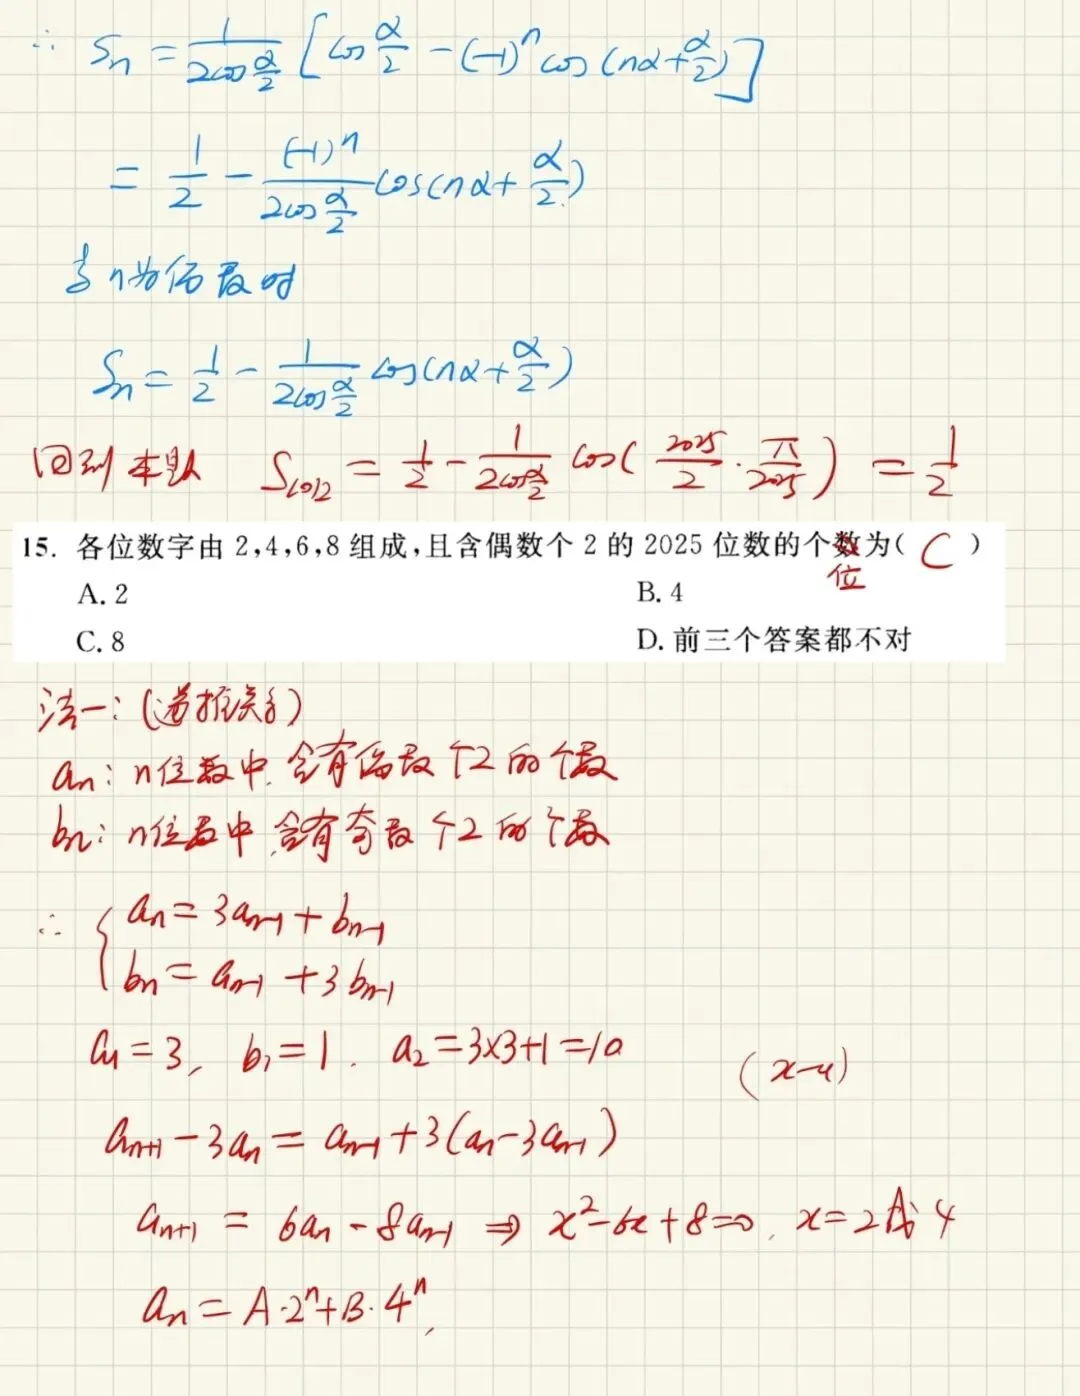 ∴ Sn = 1/(2cos α/2) [cos α/2 - (-1)^n cos(nα+α/2)]
= 1/2 - (-1)^n/(2cos α/2) cos(nα+α/2)
当n为偶数时
Sn = 1/2 - 1/(2cos α/2) cos(nα+α/2)
回到本题 S1012 = 1/2 - 1/(2cos α/2) cos(2025/2 · π/2025) = 1/2
15. 各位数字由 2,4,6,8 组成,且含偶数个 2 的 2025 位数的个数为( C )
位
A. 2 B. 4
C. 8 D. 前三个答案都不对
法一:(递推关系)
an: n位数中,含有偶数个2的个数
bn: n位数中,含有奇数个2的个数
∴ { an = 3an-1 + bn-1
bn = an-1 + 3bn-1
a1 = 3, b1 = 1. a2 = 3×3+1 = 10
(x-4)
an+1 - 3an = an-1 + 3(an - 3an-1)
an+1 = 6an - 8an-1 ⇒ x²-6x+8=0, x=2或4
an = A·2^n + B·4^n,